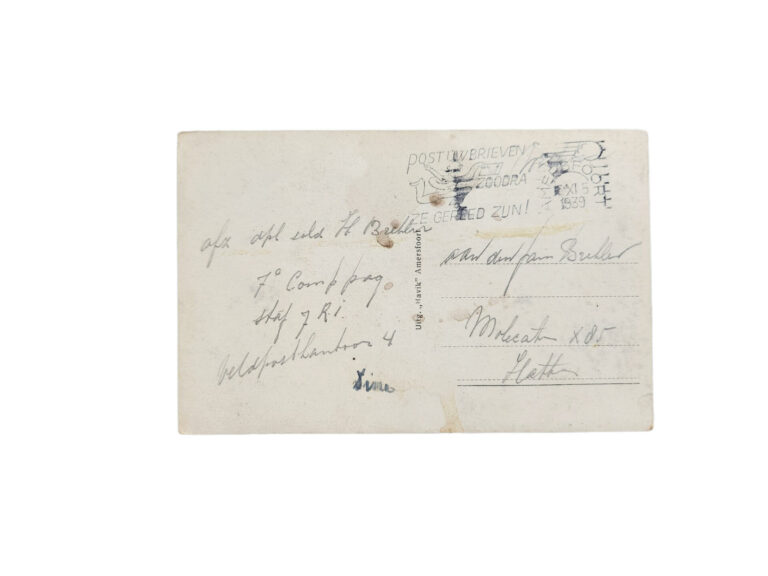 POST UW BRIEVEN
ZOODRA
ZE GEREED ZIJN!
XI 5
1939
afz dpl sold H Brekler
7e Comp pag
staf 7 R.i.
Veldpostkantoor 4
Uitg. „Havik" Amersfoort
aan den fam Brekler
Molecaten X85
Hattem